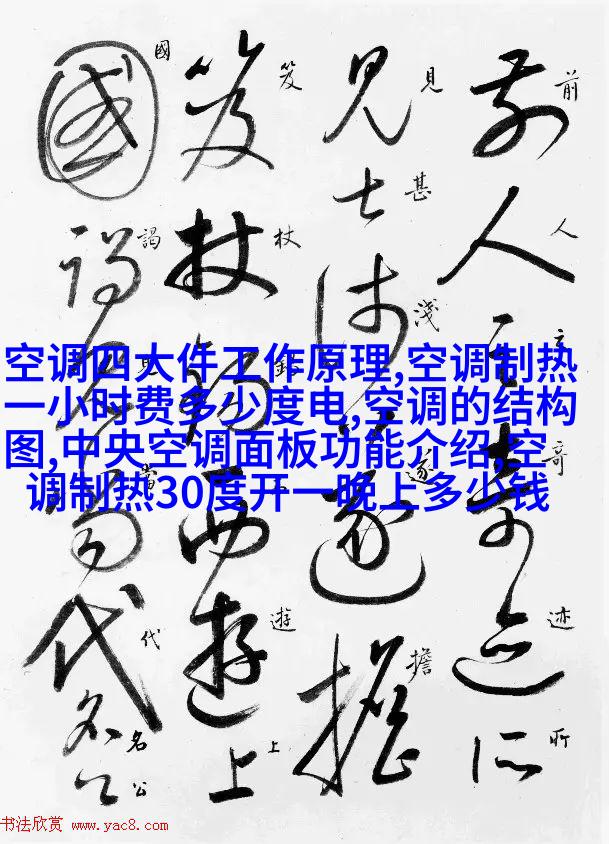 空调四大件工作原理,空调制热
一小时费多少度电,空调的结构
图,中央空调面板功能介绍,空
调制热30度开一晚上多少钱
前人之奇迹所
見甚淺遂擔
笈杖錫西遊上
國謁見當代名公
书法欣赏 www.yac8.com